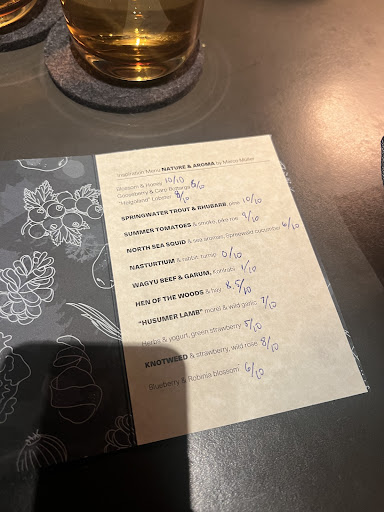 Inspiration Menu NATURE & AROMA by Marco Müller
Blossom & Honey 10/10
Gooseberry & Carp Bottarga 6/10
"Helgoland" Lobster 8/10
SPRINGWATER TROUT & RHUBARB, pine 10/10
SUMMER TOMATOES & smoke, pike roe 9/10
NORTH SEA SQUID & sea aromas, Spreewald cucumber 6/10
NASTURTIUM & rabbit, turnip 0/10
WAGYU BEEF & GARUM, Kohlrabi /10
HEN OF THE WOODS & hay 8,5/10
"HUSUMER LAMB" morel & wild garlic 7/10
Herbs & yogurt, green strawberry 5/10
KNOTWEED & strawberry, wild rose 8/10
Blueberry & Robinia blossom 6/10